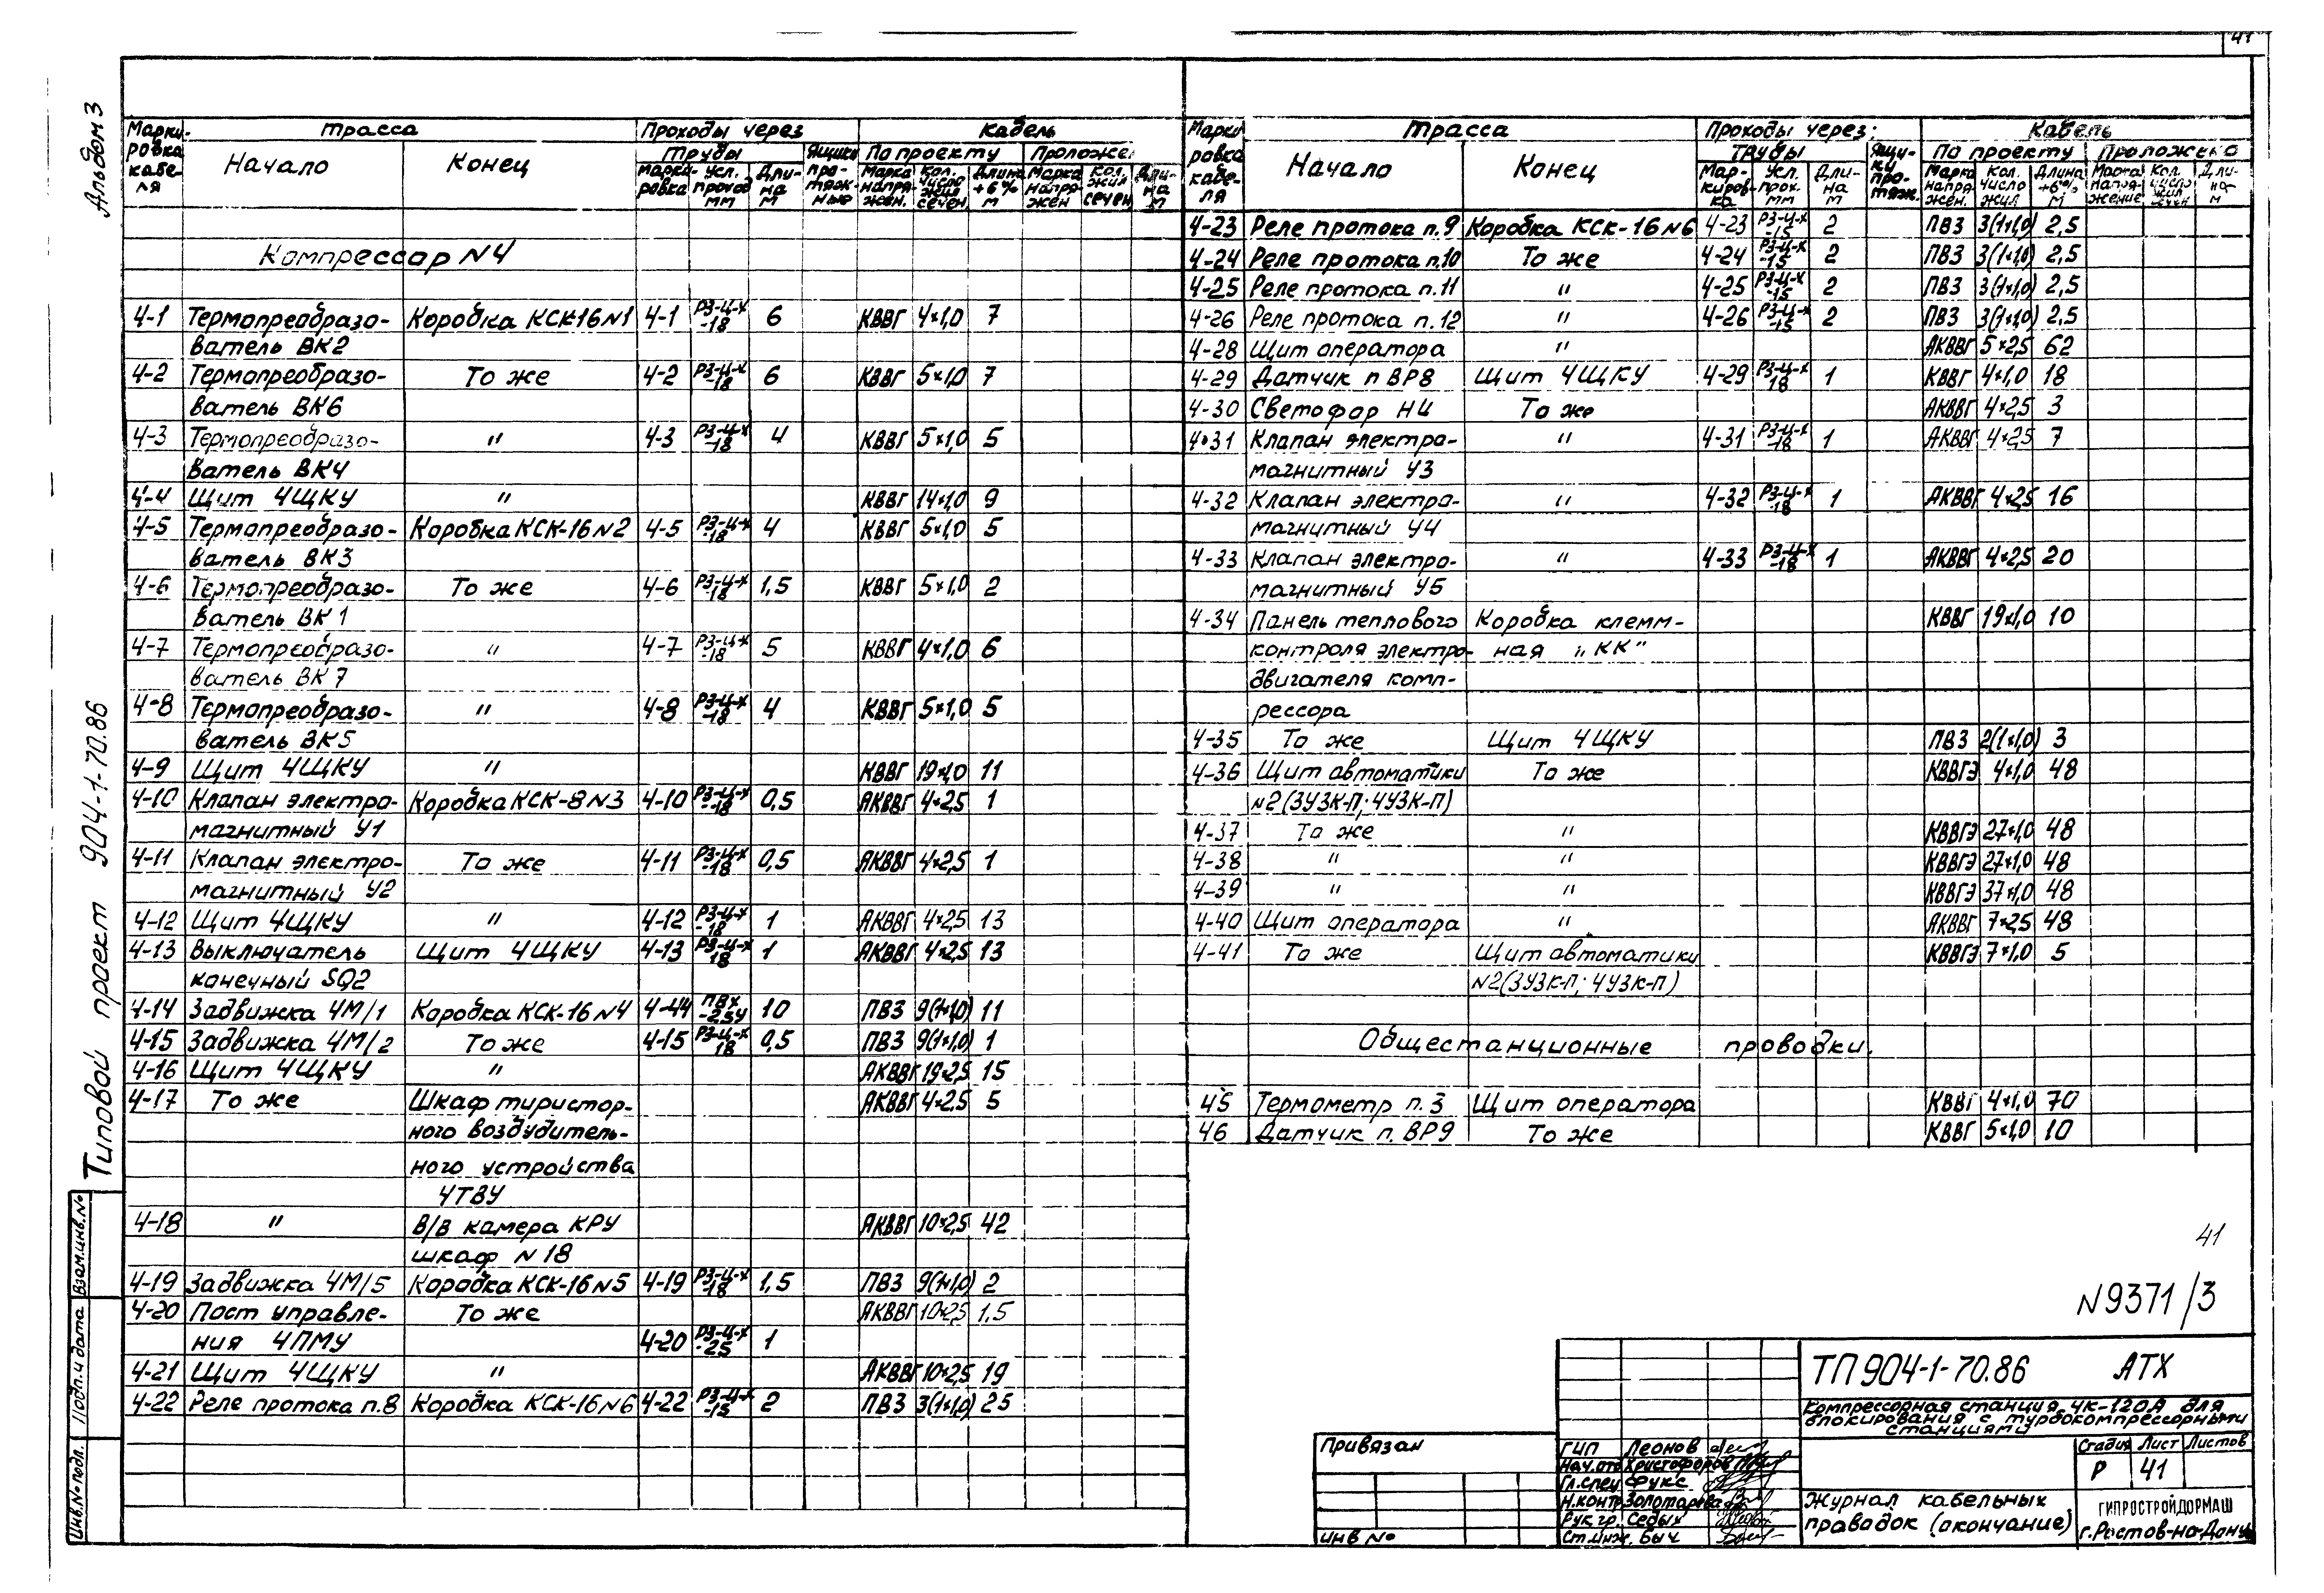 41
Альбом 3
Типовой проект 904-1-70.86
Взам.инв.№
Подп. и дата
Инв.№ подл.
Марки-ровка кабе-ля | Трасса | Проходы через | Кабель
Начало | Конец | Трубы | Ящики про-тяж-ные | По проекту | Проложе
Марки-ровка | Усл. проход мм | Дли-на м | Марка напря-жен. | Кол. число жил сечен. | Длина +6% м | Марка напря-жен | Кол. жил сечен | Дли-на м
Компрессор N4
4-1 Термопреобразо- Коробка КСК-16 N1 4-1 РЗ-Ц-Х-18 6 КВВГ 4×1,0 7
ватель ВК2
4-2 Термопреобразо- То же 4-2 РЗ-Ц-Х-18 6 КВВГ 5×1,0 7
ватель ВК6
4-3 Термопреобразо- " 4-3 РЗ-Ц-Х-18 4 КВВГ 5×1,0 5
ватель ВК4
4-4 Щит 4ЩКУ " КВВГ 14×1,0 9
4-5 Термопреобразо- Коробка КСК-16 N2 4-5 РЗ-Ц-Х-18 4 КВВГ 5×1,0 5
ватель ВК3
4-6 Термопреобразо- То же 4-6 РЗ-Ц-Х-18 1,5 КВВГ 5×1,0 2
ватель ВК1
4-7 Термопреобразо- " 4-7 РЗ-Ц-Х-18 5 КВВГ 4×1,0 6
ватель ВК7
4-8 Термопреобразо- " 4-8 РЗ-Ц-Х-18 4 КВВГ 5×1,0 5
ватель ВК5
4-9 Щит 4ЩКУ " КВВГ 19×1,0 11
4-10 Клапан электро- Коробка КСК-8 N3 4-10 РЗ-Ц-Х-18 0,5 АКВВГ 4×2,5 1
магнитный У1
4-11 Клапан электро- То же 4-11 РЗ-Ц-Х-18 0,5 АКВВГ 4×2,5 1
магнитный У2
4-12 Щит 4ЩКУ " 4-12 РЗ-Ц-Х-18 1 АКВВГ 4×2,5 13
4-13 Выключатель Щит 4ЩКУ 4-13 РЗ-Ц-Х-18 1 АКВВГ 4×2,5 13
конечный SQ2
4-14 Задвижка 4М/1 Коробка КСК-16 N4 4-44 ПВХ-25У 10 ПВ3 9(1×1,0) 11
4-15 Задвижка 4М/2 То же 4-15 РЗ-Ц-Х-18 0,5 ПВ3 9(1×1,0) 1
4-16 Щит 4ЩКУ " АКВВГ 19×2,5 15
4-17 То же Шкаф тиристор- АКВВГ 4×2,5 5
ного воздудитель-
ного устройства
4ТВУ
4-18 " В/В камера КРУ АКВВГ 10×2,5 42
шкаф N 18
4-19 Задвижка 4М/5 Коробка КСК-16 N5 4-19 РЗ-Ц-Х-18 1,5 ПВ3 9(1×1,0) 2
4-20 Пост управле- То же АКВВГ 10×2,5 1,5
ния 4ПМУ 4-20 РЗ-Ц-Х-25 1
4-21 Щит 4ЩКУ " АКВВГ 10×2,5 19
4-22 Реле протока п.8 Коробка КСК-16 N6 4-22 РЗ-Ц-Х-15 2 ПВ3 3(1×1,0) 25
Марки ровка кабе-ля | Трасса | Проходы через: | Кабель
Начало | Конец | Трубы | Ящи-ки про-тяж. | По проекту | Проложено
Мар-киров-ка | Усл. прох. мм | Дли-на м | Марка напря-жен. | Кол. число жил | Длина +6% м | Марка напря-жение | Кол. число жил сечен | Дли-на м
4-23 Реле протока п.9 Коробка КСК-16 N6 4-23 РЗ-Ц-Х-15 2 ПВ3 3(1×1,0) 2,5
4-24 Реле протока п.10 То же 4-24 РЗ-Ц-Х-15 2 ПВ3 3(1×1,0) 2,5
4-25 Реле протока п.11 " 4-25 РЗ-Ц-Х-15 2 ПВ3 3(1×1,0) 2,5
4-26 Реле протока п.12 " 4-26 РЗ-Ц-Х-15 2 ПВ3 3(1×1,0) 2,5
4-28 Щит оператора " АКВВГ 5×2,5 62
4-29 Датчик п ВР8 Щит 4ЩКУ 4-29 РЗ-Ц-Х-18 1 КВВГ 4×1,0 18
4-30 Светофор НЦ То же АКВВГ 4×2,5 3
4-31 Клапан электро- " 4-31 РЗ-Ц-Х-18 1 АКВВГ 4×2,5 7
магнитный У3
4-32 Клапан электро- " 4-32 РЗ-Ц-Х-18 1 АКВВГ 4×2,5 16
магнитный У4
4-33 Клапан электро- " 4-33 РЗ-Ц-Х-18 1 АКВВГ 4×2,5 20
магнитный У5
4-34 Панель теплового Коробка клемм- КВВГ 19×1,0 10
контроля электро- ная „КК"
двигателя комп-
рессора
4-35 То же Щит 4ЩКУ ПВ3 2(1×1,0) 3
4-36 Щит автоматики То же КВВГЭ 4×1,0 48
N2 (3УЗК-П; 4УЗК-П)
4-37 То же " КВВГЭ 27×1,0 48
4-38 " " КВВГЭ 27×1,0 48
4-39 " " КВВГЭ 37×1,0 48
4-40 Щит оператора " АКВВГ 7×2,5 48
4-41 То же Щит автоматики КВВГЭ 7×1,0 5
N2 (3УЗК-П; 4УЗК-П)
Общестанционные проводки.
45 Термометр п.3 Щит оператора КВВГ 4×1,0 70
46 Датчик п. ВР9 То же КВВГ 5×1,0 10
41
N9371/3
ТП 904-1-70.86 АТХ
Компрессорная станция 4К-120А для
блокирования с турбокомпрессорными
станциями
Привязан
Инв №
ГИП Леонов
Нач.отд Христофоров
Гл.спец Фукс
Н.контр Золотарева
Рук.гр. Седых
Ст.инж. Быч
Стадия Лист Листов
Р 41
Журнал кабельных
проводок (окончание)
ГИПРОСТРОЙДОРМАШ
г.Ростов-на-Дону